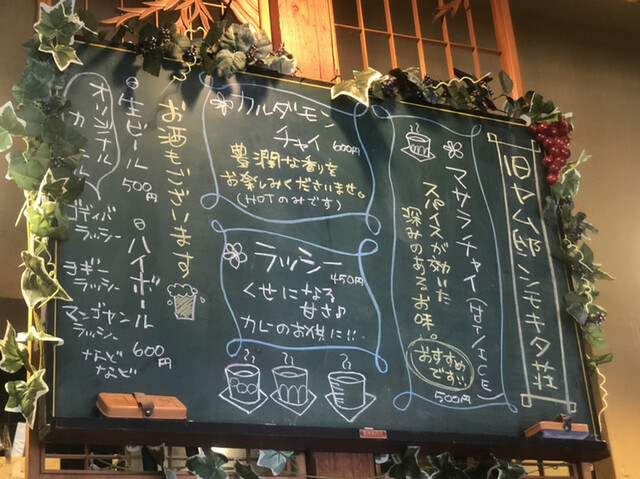 旧ヤム邸シモキタ荘
マサラチャイ(HOT/ICE)
スパイスが効いた
深みのあるお味。
おすすめ
です!!
500円
カルダモン
チャイ 600円
豊潤な香りを
お楽しみくださいませ。
(HOTのみです)
ラッシー
450円
くせになる
甘さ♪
カレーのお供に!!
お酒もございます
◎生ビール
500円
◎ハイボール
600円
オリジナル
ゴディバ
ラッシー
ヨギー
ラッシー
マンゴヤン
ラッシー
などなど